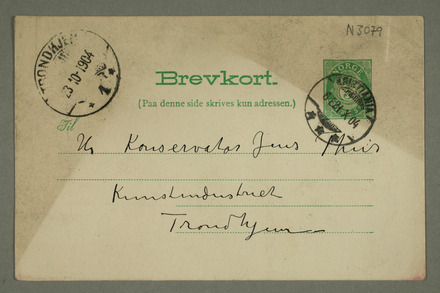 N3079
TRONDHJEM
23·10·1904
1
NORGE
Brevkort.
KRISTIANIA
21 X 04
(Paa denne side skrives kun adressen.)
Til
Hr Konservator Jens Thiis
Kunstindustriet
Trondhjem